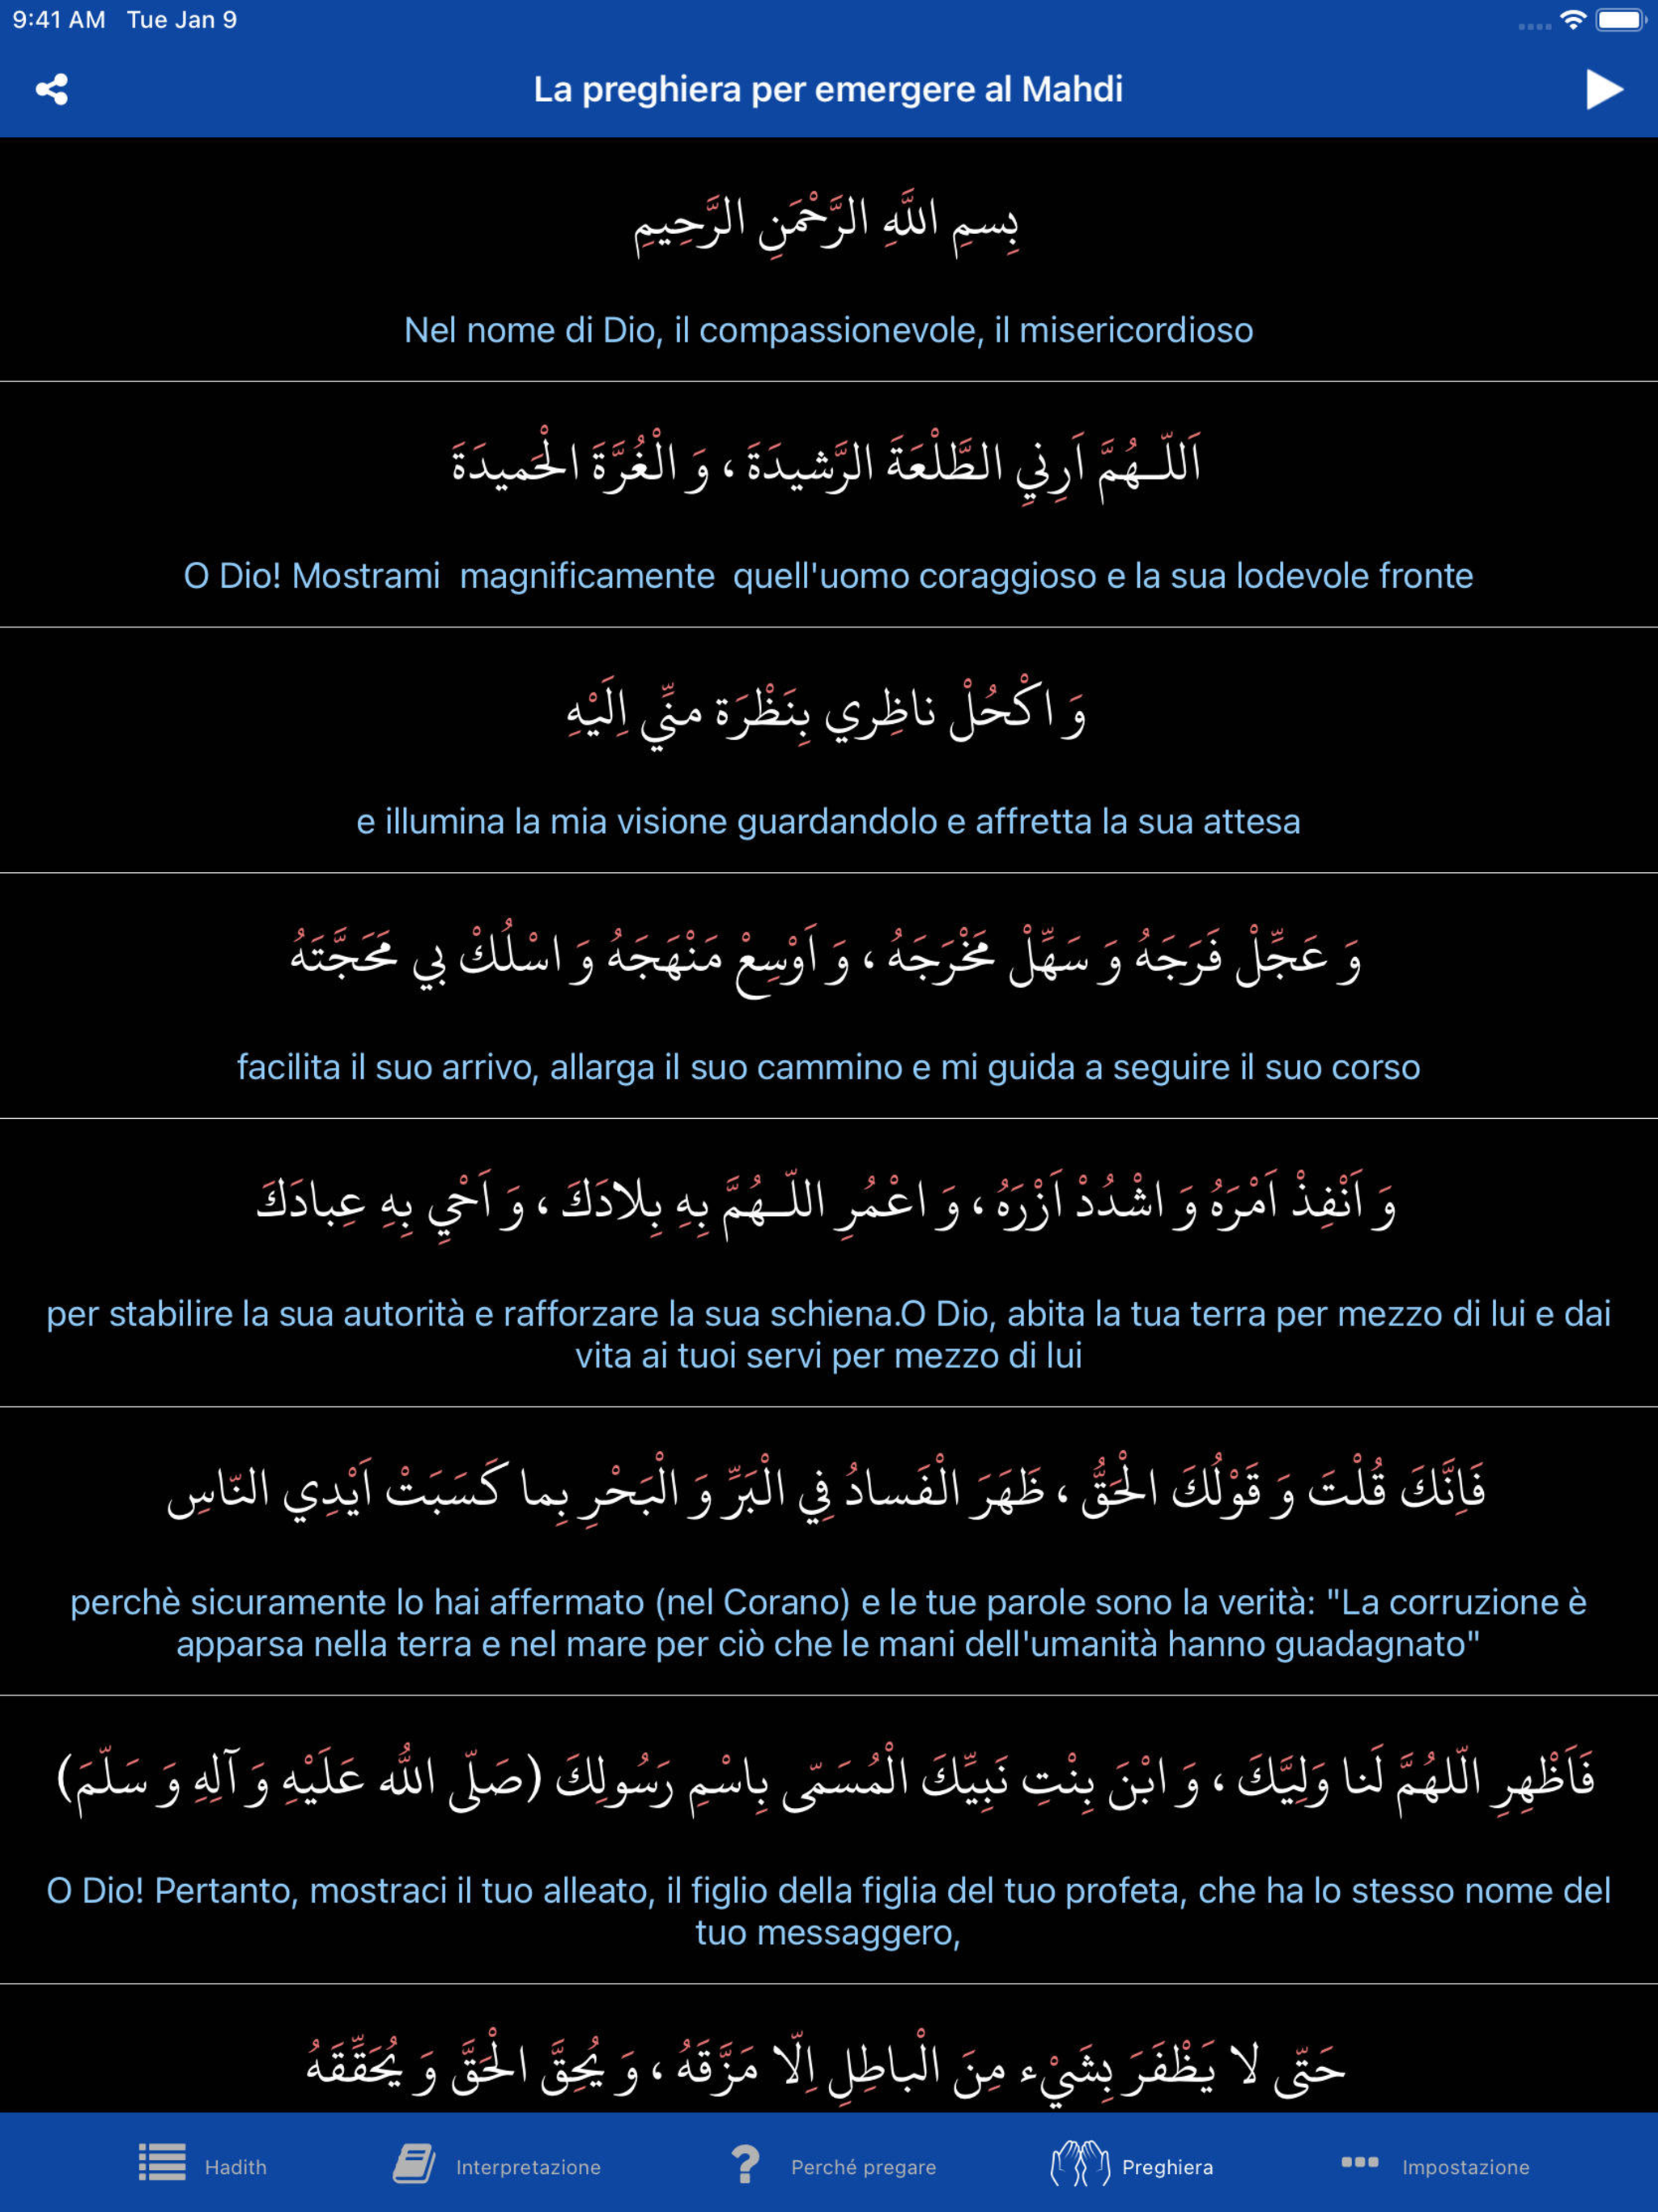 9:41 AM Tue Jan 9
La preghiera per emergere al Mahdi
بِسمِ اللَّهِ الرَّحْمَنِ الرَّحِيمِ
Nel nome di Dio, il compassionevole, il misericordioso
اَللّـهُمَّ اَرِنيِ الطَّلْعَةَ الرَّشيدَةَ ، وَ الْغُرَّةَ الْحَميدَةَ
O Dio! Mostrami  magnificamente  quell'uomo coraggioso e la sua lodevole fronte
وَ اكْحُلْ ناظِري بِنَظْرَة منِّي اِلَيْهِ
e illumina la mia visione guardandolo e affretta la sua attesa
وَ عَجِّلْ فَرَجَهُ وَ سَهِّلْ مَخْرَجَهُ ، وَ اَوْسِعْ مَنْهَجَهُ وَ اسْلُكْ بي مَحَجَّتَهُ
facilita il suo arrivo, allarga il suo cammino e mi guida a seguire il suo corso
وَ اَنْفِذْ اَمْرَهُ وَ اشْدُدْ اَزْرَهُ ، وَ اعْمُرِ اللّـهُمَّ بِهِ بِلادَكَ ، وَ اَحْيِ بِهِ عِبادَكَ
per stabilire la sua autorità e rafforzare la sua schiena.O Dio, abita la tua terra per mezzo di lui e dai
vita ai tuoi servi per mezzo di lui
فَاِنَّكَ قُلْتَ وَ قَوْلُكَ الْحَقُّ ، ظَهَرَ الْفَسادُ فِي الْبَرِّ وَ الْبَحْرِ بِما كَسَبَتْ اَيْدِي النّاسِ
perchè sicuramente lo hai affermato (nel Corano) e le tue parole sono la verità: "La corruzione è
apparsa nella terra e nel mare per ciò che le mani dell'umanità hanno guadagnato"
فَاَظْهِرِ الّلهُمَّ لَنا وَلِيَّكَ ، وَ ابْنَ بِنْتِ نَبِيِّكَ الْمُسَمّى بِاسْمِ رَسُولِكَ (صَلّى اللهُ عَلَيْهِ وَ آلِهِ وَ سَلّمَ)
O Dio! Pertanto, mostraci il tuo alleato, il figlio della figlia del tuo profeta, che ha lo stesso nome del
tuo messaggero,
حَتّى لا يَظْفَرَ بِشَيْء مِنَ الْباطِلِ اِلّا مَزَّقَهُ ، وَ يُحِقَّ الْحَقَّ وَ يُحَقِّقَهُ
Hadith
Interpretazione
Perché pregare
Preghiera
Impostazione